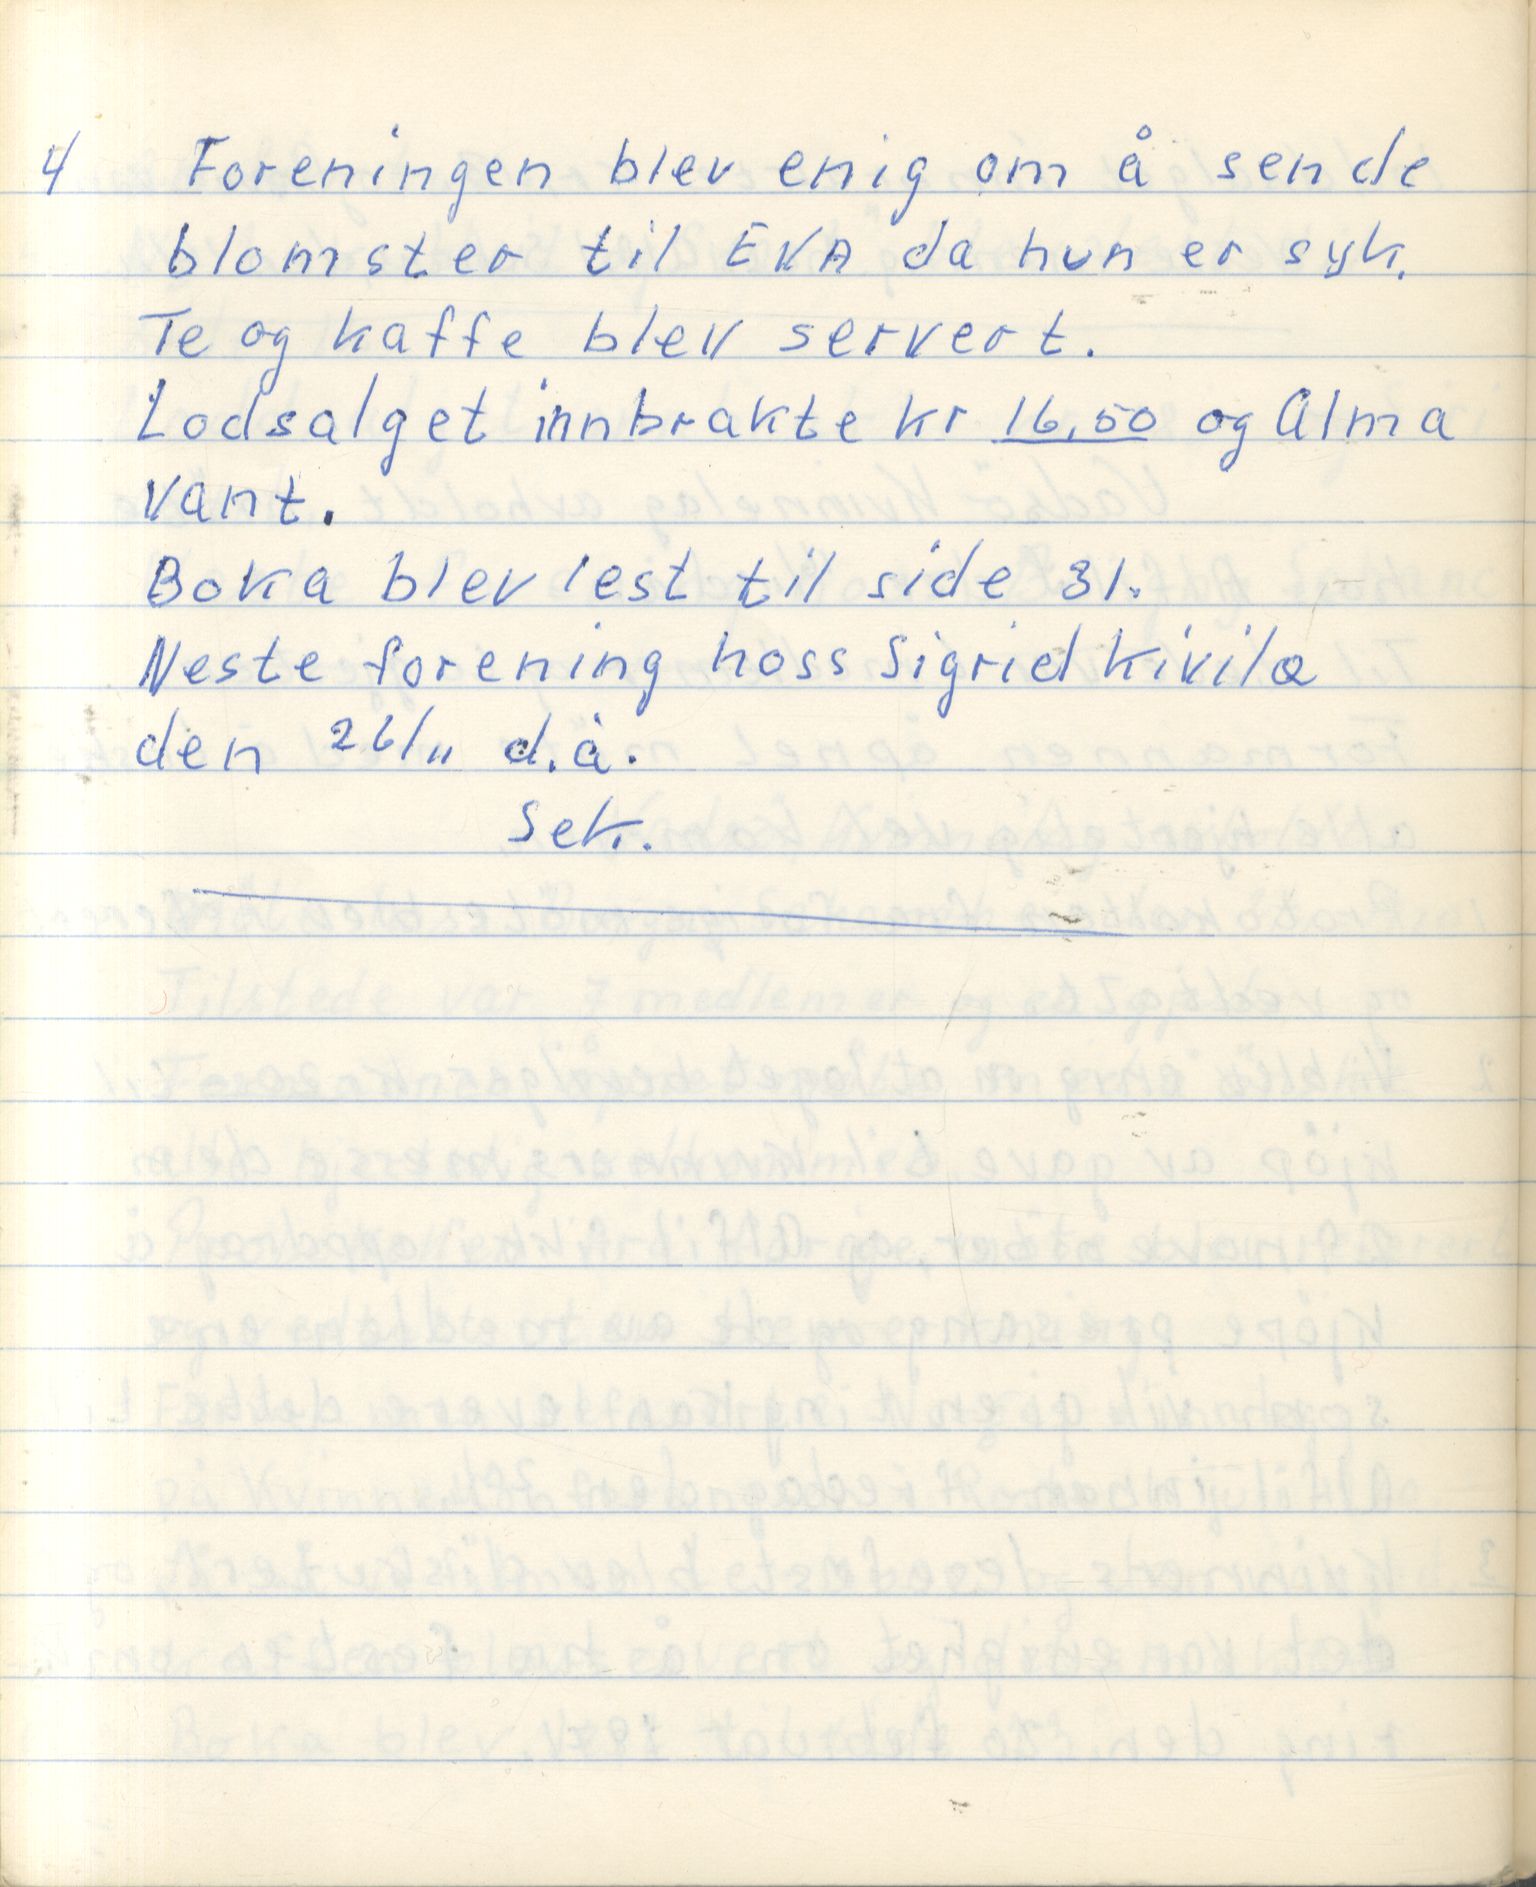 4 Foreningen blev enig om å sende
blomster til EVA da hun er syk.
Te og kaffe blev servert.
Lodsalget innbrakte kr 16,50 og Alma
vant.
Boka blev lest til side 31.
Neste forening hoss Sigrid Kivila
den 26/11 d.å.
Sek.